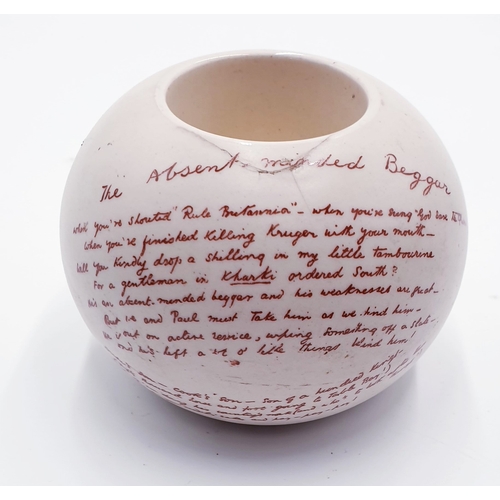 The Absent-minded Beggar
When you've shouted "Rule Britannia" - when you've sung "God save
When you've finished Killing Kruger with your mouth -
Will you Kindly drop a shilling in my little tambourine
For a gentleman in Kharki ordered South?
He's an absent-minded beggar and his weaknesses are great -
But we and Paul must Take him as we find him -
He is out on active service, wiping something off a slate -
and he's left a lot o' little Things behind him!
Cook's son - son of a hundred Kings -